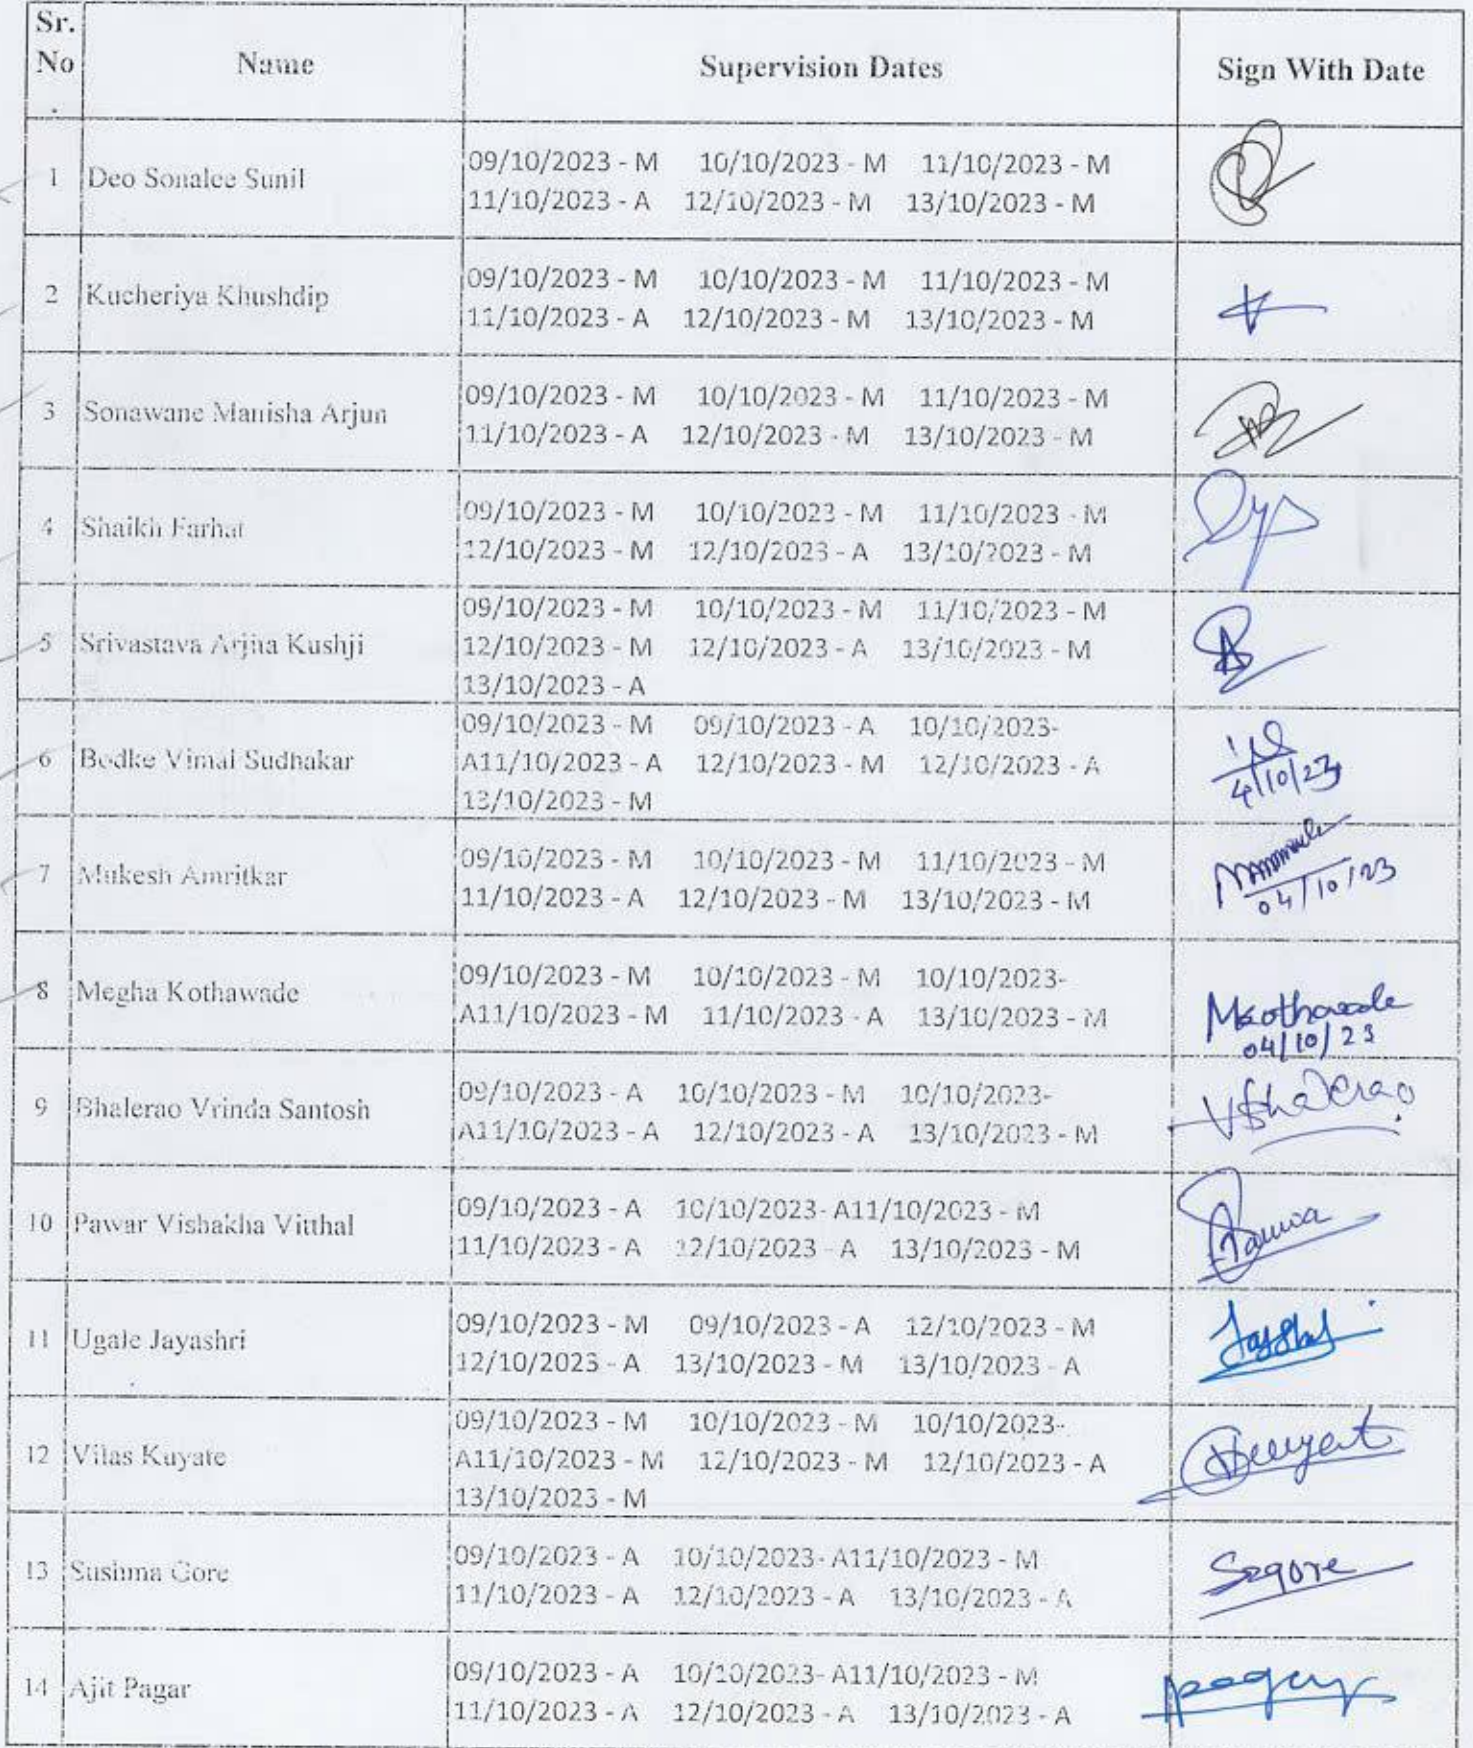 Sr. No . Name Supervision Dates Sign With Date
1 Deo Sonalee Sunil
09/10/2023 - M 10/10/2023 - M 11/10/2023 - M
11/10/2023 - A 12/10/2023 - M 13/10/2023 - M
2 Kucheriya Khushdip
09/10/2023 - M 10/10/2023 - M 11/10/2023 - M
11/10/2023 - A 12/10/2023 - M 13/10/2023 - M
3 Sonawane Manisha Arjun
09/10/2023 - M 10/10/2023 - M 11/10/2023 - M
11/10/2023 - A 12/10/2023 - M 13/10/2023 - M
4 Shaikh Farhat
09/10/2023 - M 10/10/2023 - M 11/10/2023 - M
12/10/2023 - M 12/10/2023 - A 13/10/2023 - M
5 Srivastava Arjna Kushji
09/10/2023 - M 10/10/2023 - M 11/10/2023 - M
12/10/2023 - M 12/10/2023 - A 13/10/2023 - M
13/10/2023 - A
6 Bodke Vimal Sudhakar
09/10/2023 - M 09/10/2023 - A 10/10/2023-
A11/10/2023 - A 12/10/2023 - M 12/10/2023 - A
13/10/2023 - M
4/10/23
7 Mukesh Amritkar
09/10/2023 - M 10/10/2023 - M 11/10/2023 - M
11/10/2023 - A 12/10/2023 - M 13/10/2023 - M
04/10/23
8 Megha Kothawade
09/10/2023 - M 10/10/2023 - M 10/10/2023-
A11/10/2023 - M 11/10/2023 - A 13/10/2023 - M
04/10/23
9 Bhalerao Vrinda Santosh
09/10/2023 - A 10/10/2023 - M 10/10/2023-
A11/10/2023 - A 12/10/2023 - A 13/10/2023 - M
VBhalerao
10 Pawar Vishakha Vitthal
09/10/2023 - A 10/10/2023- A11/10/2023 - M
11/10/2023 - A 12/10/2023 - A 13/10/2023 - M
11 Ugale Jayashri
09/10/2023 - M 09/10/2023 - A 12/10/2023 - M
12/10/2023 - A 13/10/2023 - M 13/10/2023 - A
12 Vilas Kuyate
09/10/2023 - M 10/10/2023 - M 10/10/2023-
A11/10/2023 - M 12/10/2023 - M 12/10/2023 - A
13/10/2023 - M
13 Sushma Gore
09/10/2023 - A 10/10/2023- A11/10/2023 - M
11/10/2023 - A 12/10/2023 - A 13/10/2023 - A
14 Ajit Pagar
09/10/2023 - A 10/10/2023- A11/10/2023 - M
11/10/2023 - A 12/10/2023 - A 13/10/2023 - A